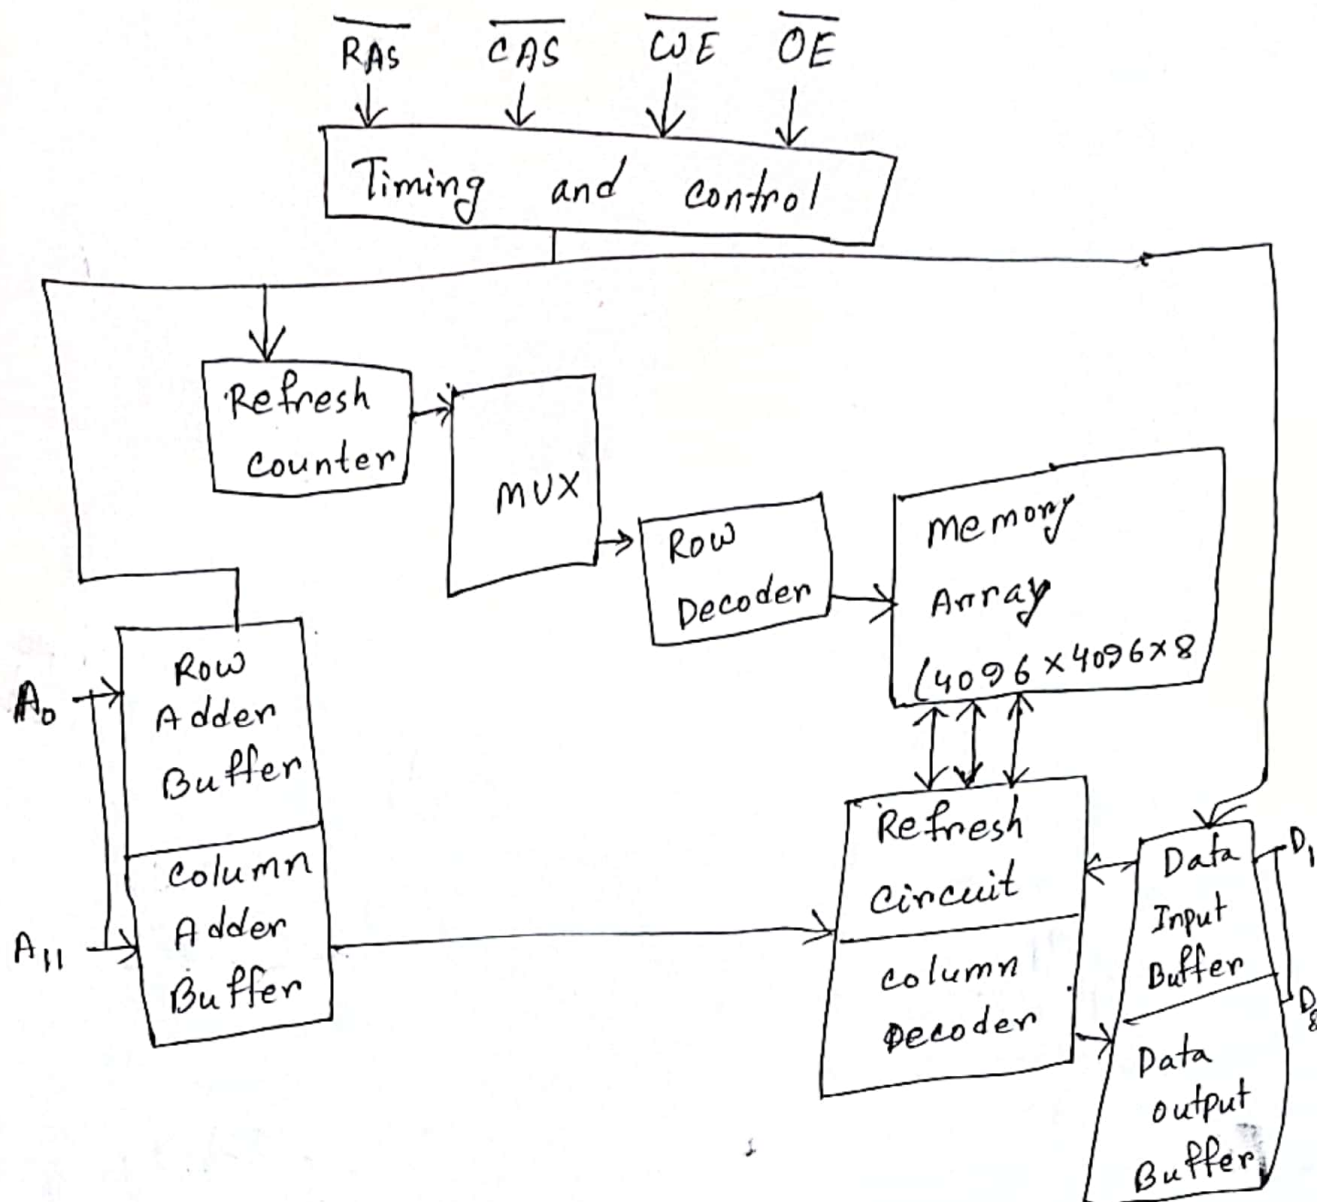 RAS CAS WE OE
Timing and control
Refresh
counter
MUX
Row
Decoder
Memory
Array
(4096×4096×8
A0
Row
Adder
Buffer
A11
Column
Adder
Buffer
Refresh
Circuit
Column
Decoder
Data
Input
Buffer
D1
D8
Data
output
Buffer